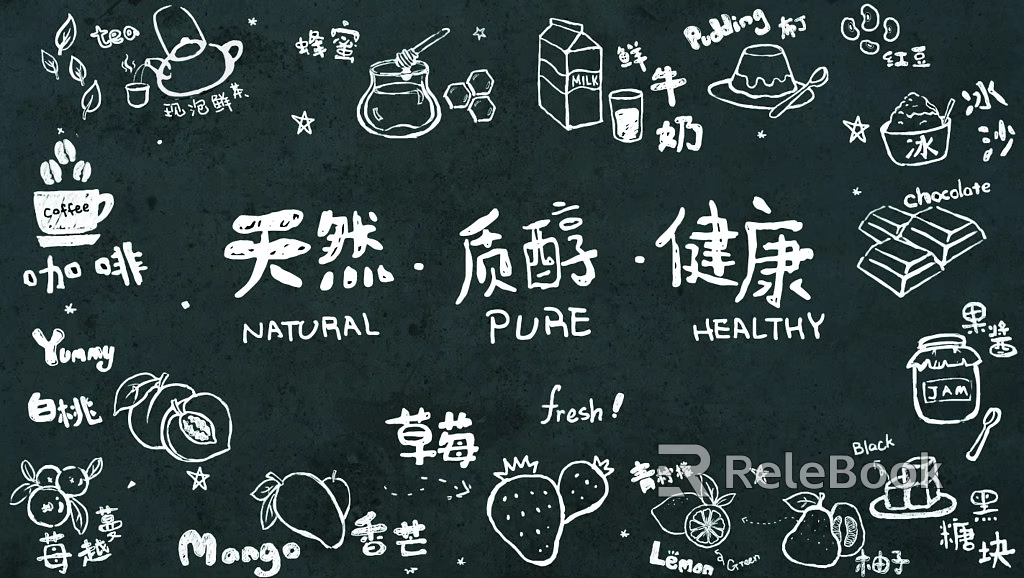 tea
现泡鲜茶
蜂蜜
MILK
鲜牛奶
Pudding 布丁
红豆
冰沙
冰
coffee
咖啡
chocolate
天然·质醇·健康
NATURAL PURE HEALTHY
果酱
JAM
Yummy
白桃
fresh!
草莓
Black
黑糖块
ReleBook
青柠檬
Lemon
& Green
柚子
Mango
香芒
蔓越莓